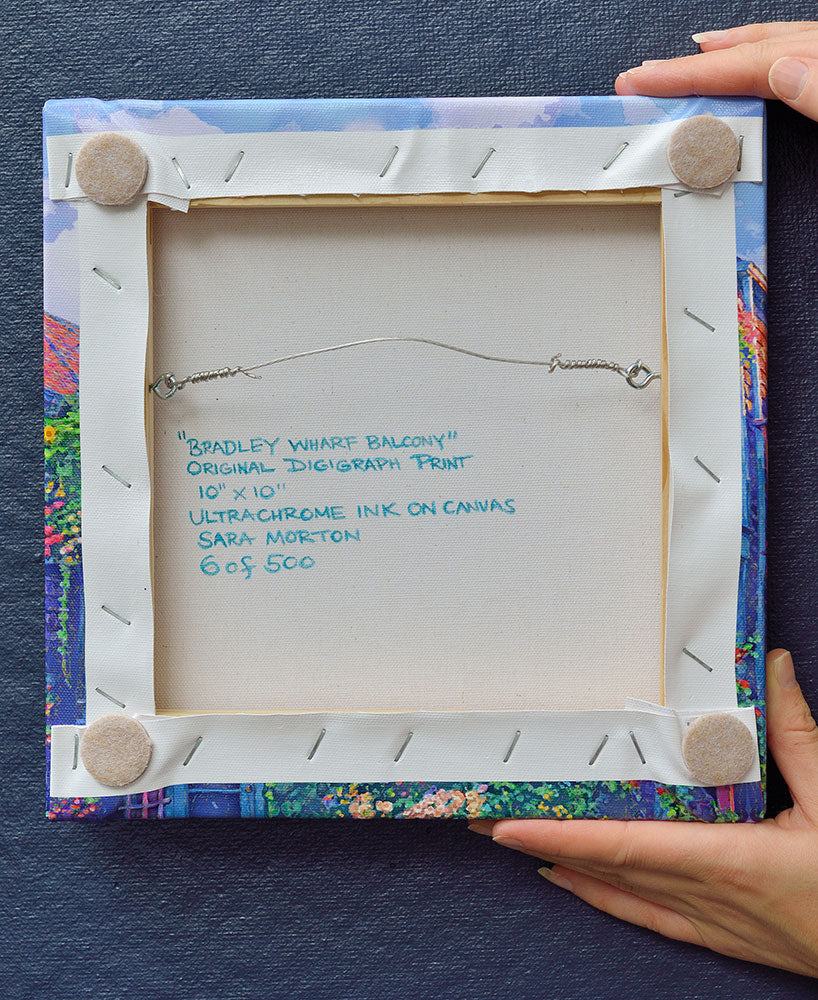 "BRADLEY WHARF BALCONY"
ORIGINAL DIGIGRAPH PRINT
10" x 10"
ULTRACHROME INK ON CANVAS
SARA MORTON
6 of 500